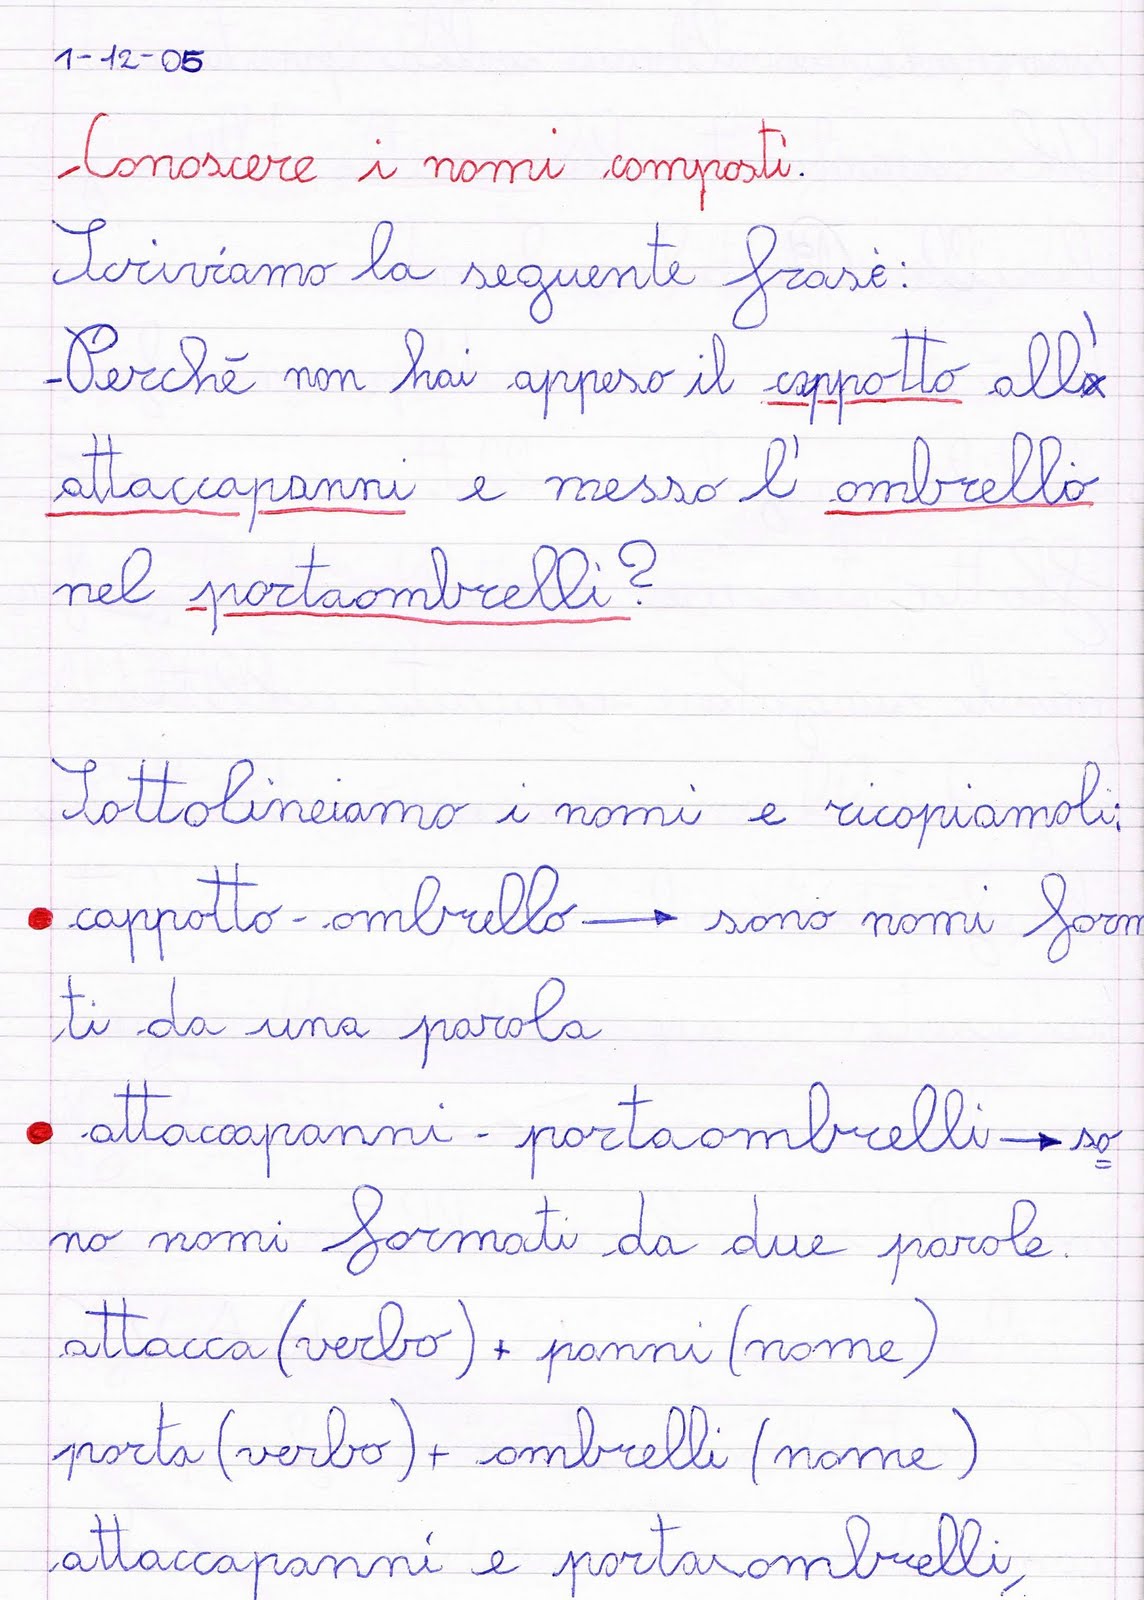 1-12-05
-Conoscere i nomi composti.
Scriviamo la seguente frase:
-Perché non hai appeso il cappotto all'
attaccapanni e messo l'ombrello
nel portaombrelli?
Sottolineiamo i nomi e ricopiamoli:
• cappotto - ombrello → sono nomi form
ti da una parola
• attaccapanni - portaombrelli → so
no nomi formati da due parole.
attacca (verbo) + panni (nome)
porta (verbo) + ombrelli (nome)
attaccapanni e portaombrelli,